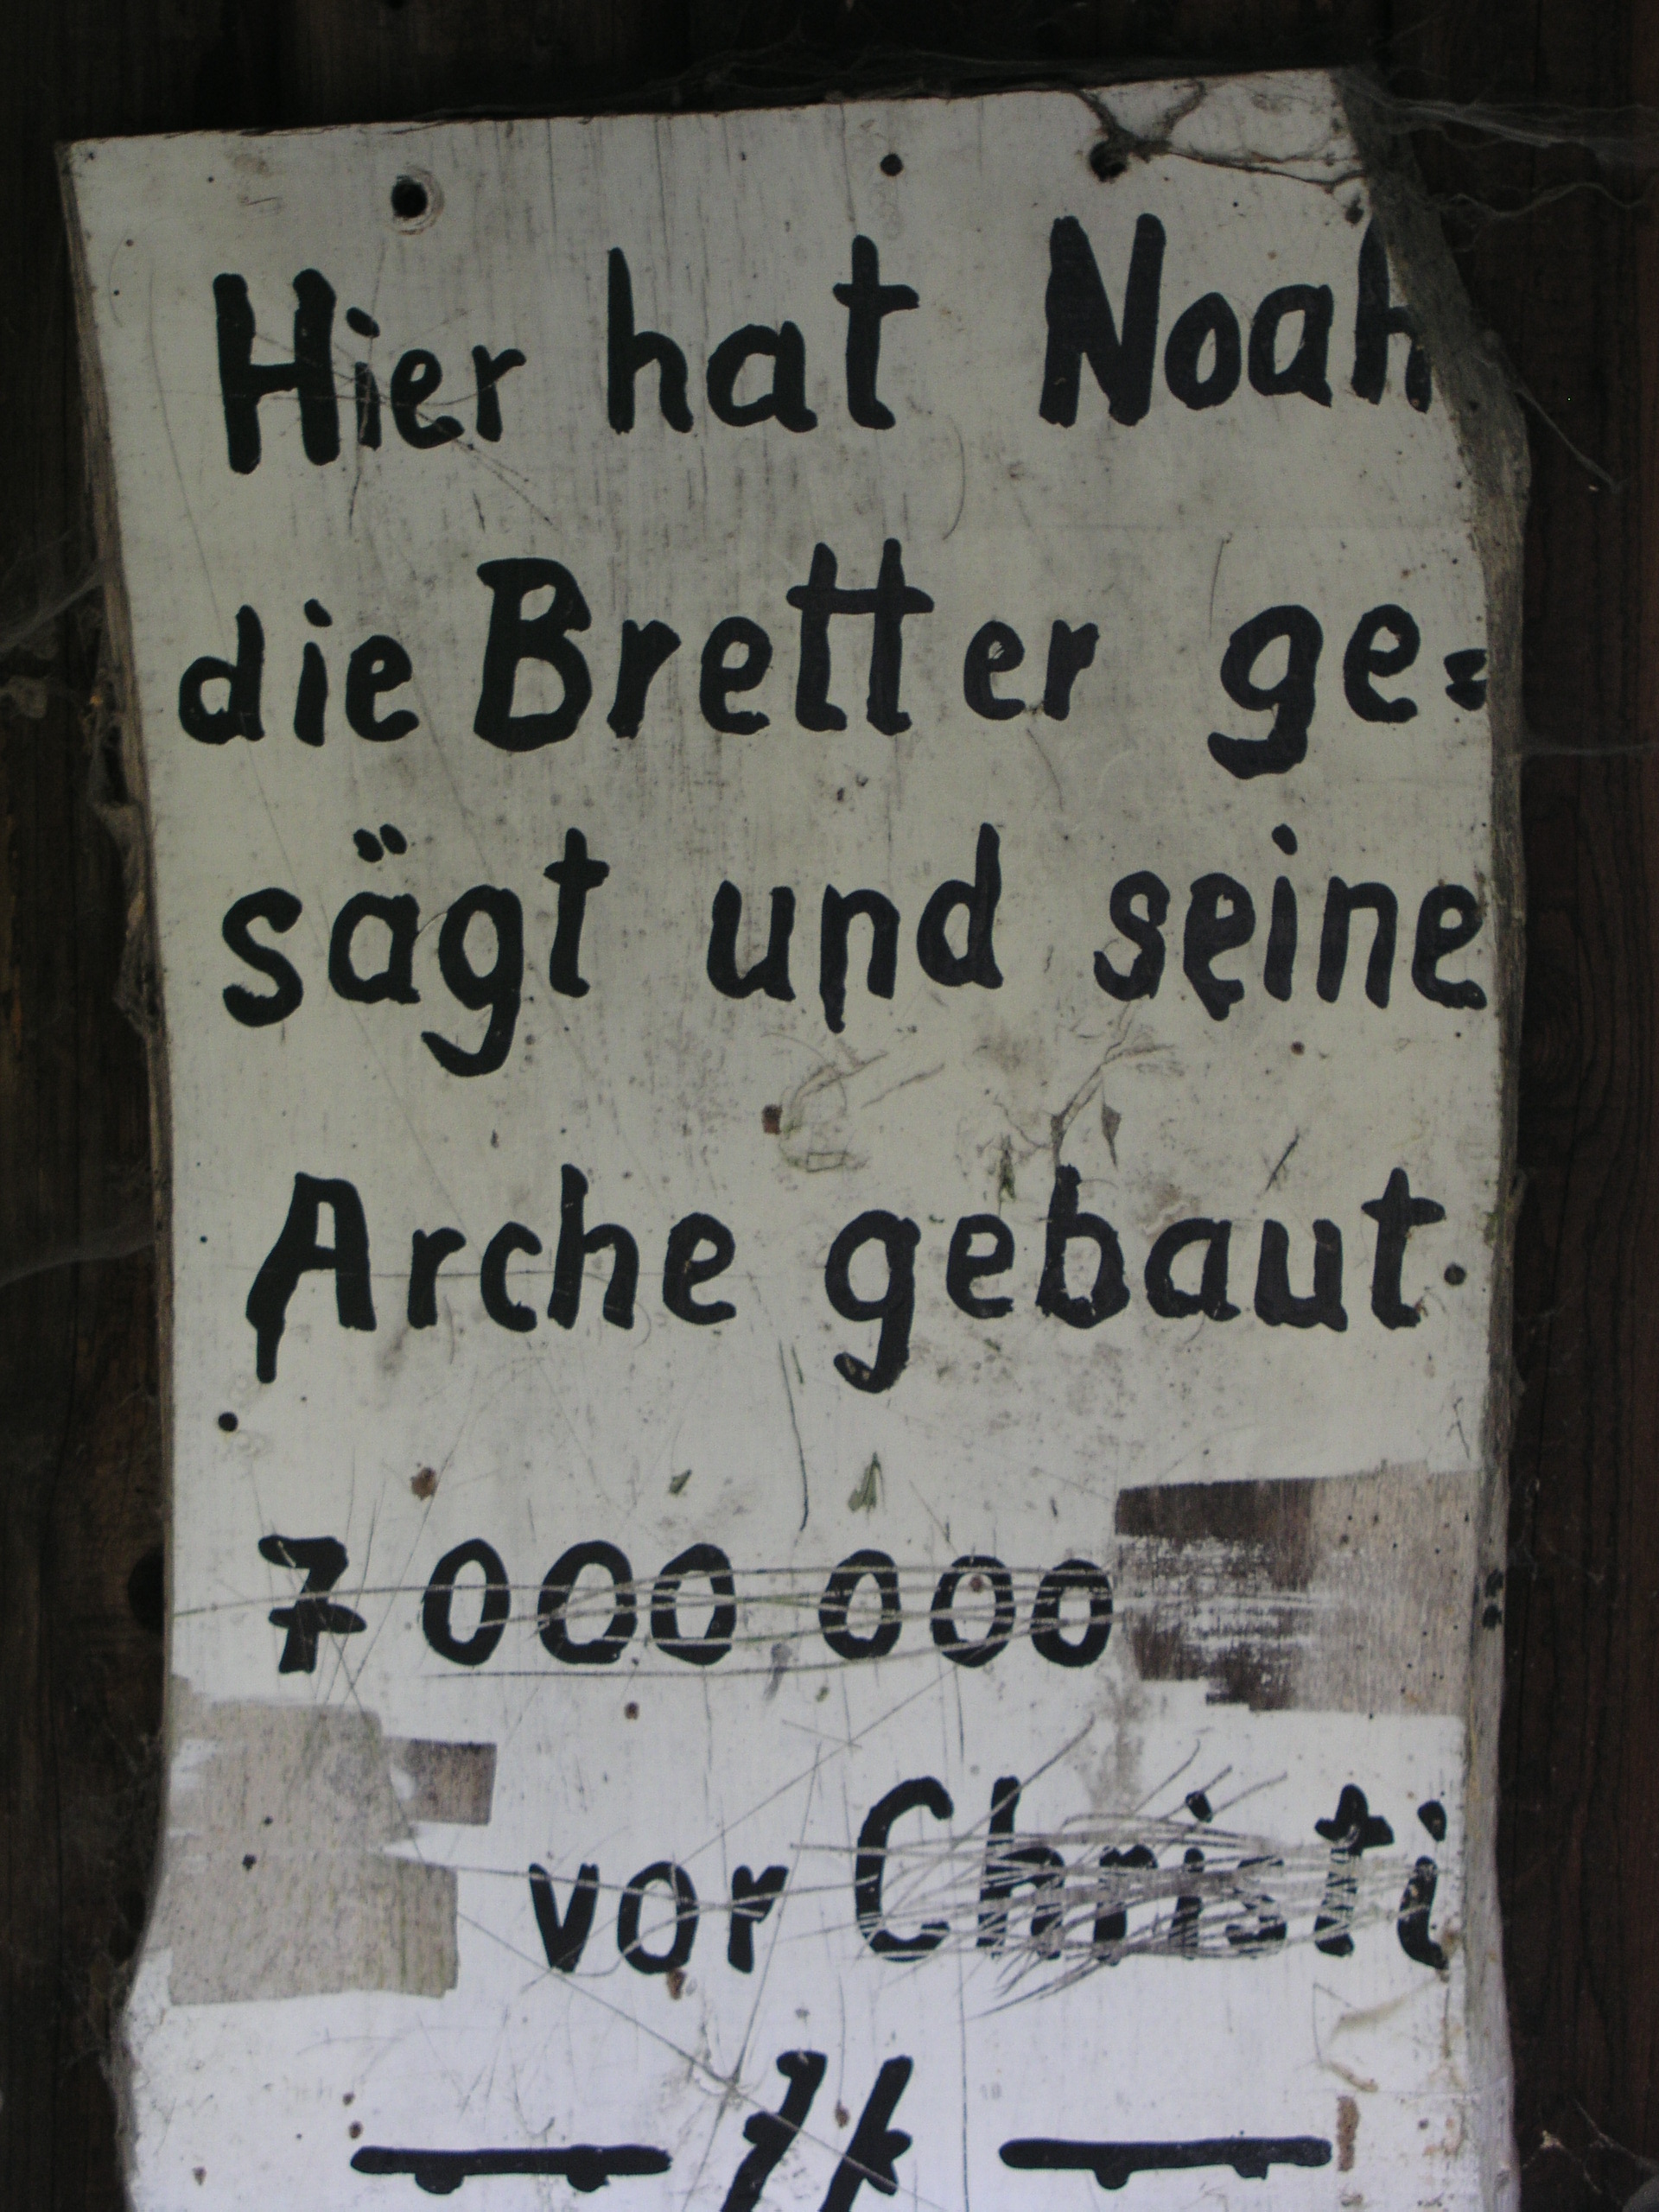 Hier hat Noah
die Bretter ge=
sägt und seine
Arche gebaut.
7 000 000
vor Christi